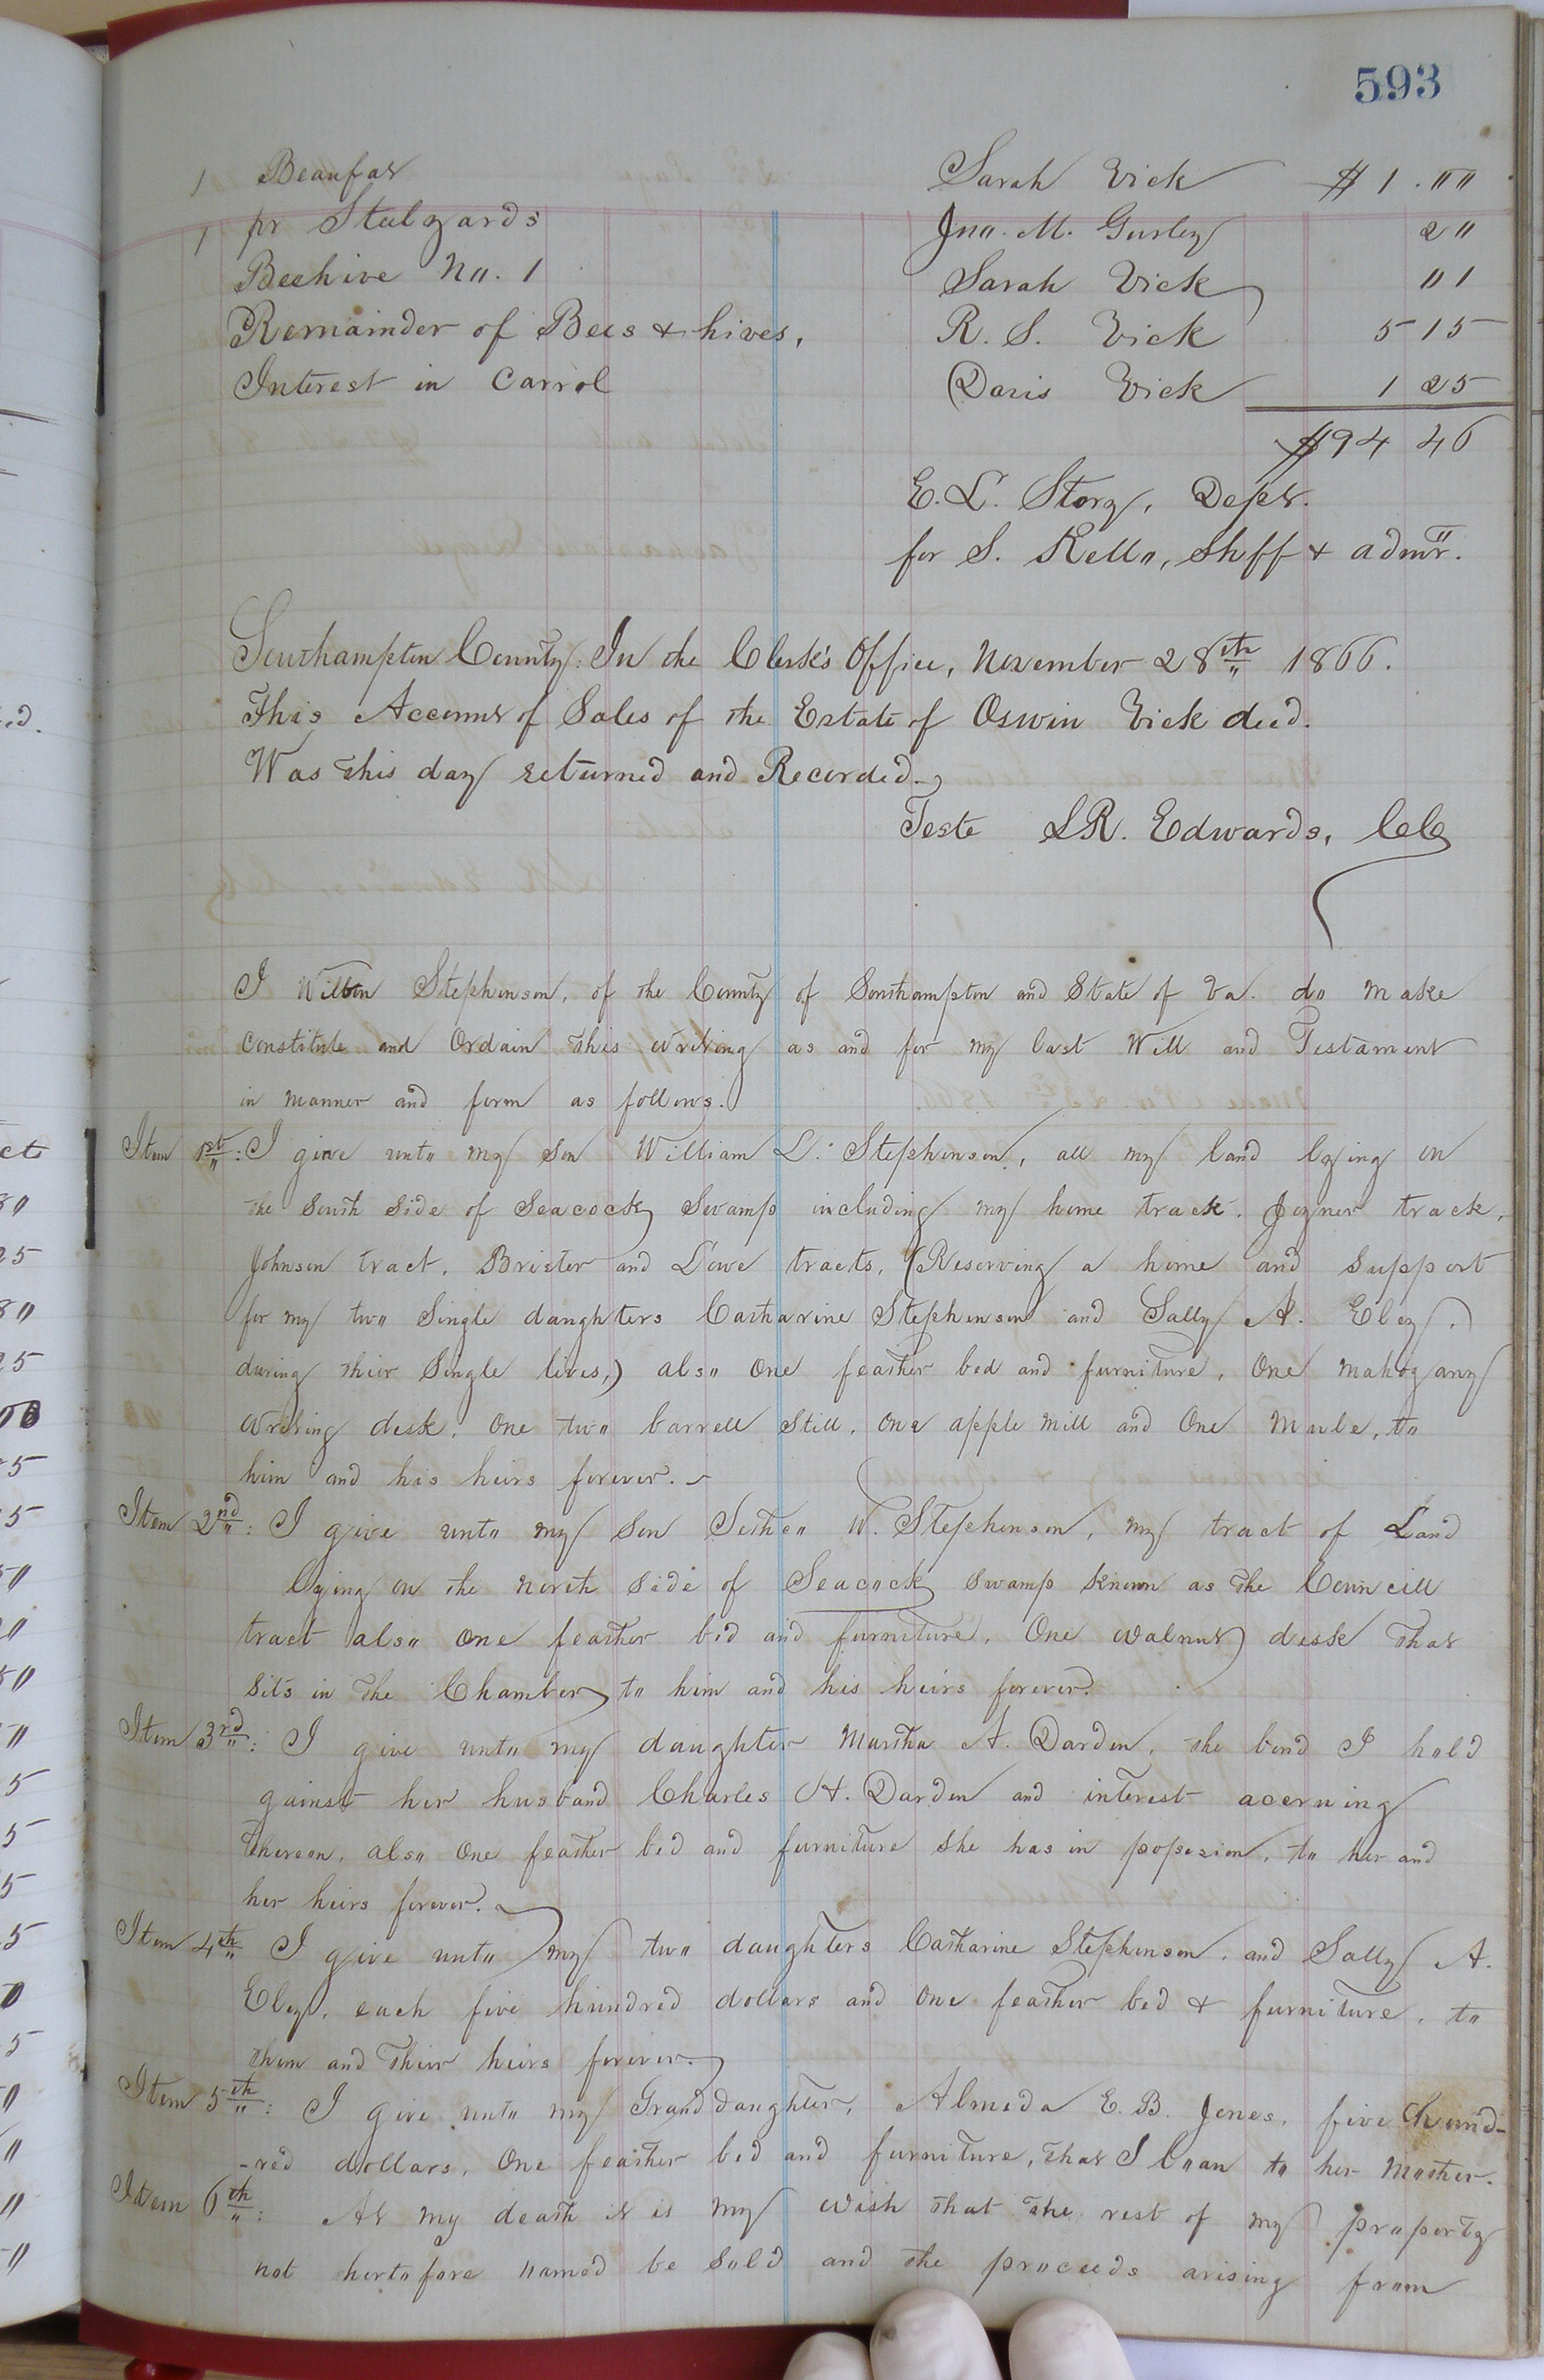 593
1 Beaufat Sarah Vick $1.00
1 pr Stelyards Jno. M. Gurley 20
Beehive No. 1 Sarah Vick 01
Remainder of Bees & hives, R. S. Vick 5 15
Interest in Carrol Davis Vick 1 25
$94 46
E. L. Story, Dept.
for S. Kello, Shff & admr.
Southampton County: In the Clerk's Office, November 28th 1866.
This Account of Sales of the Estate of Oswin Vick decd.
Was this day returned and Recorded.
Teste L R. Edwards, CC
I Stephenson, of the County of Southampton and State of Va. do make
constitute and Ordain this writing as and for my last Will and Testament
in manner and form as follows.
Item 1st: I give unto my Son William L. Stephenson, all my land lying on
the South Side of Seacock Swamp including my home track, Joyner track,
Johnson tract, Brister and Lowe tracts, (Reserving a home and support
for my two Single daughters Catharine Stephenson and Sally A. Eley,
during their Single lives,) also One feather bed and furniture, One mahogany
writing desk, One two barrell Still, One apple mill and One Mule, to
him and his heirs forever.
Item 2nd: I give unto my Son W. Stephenson, my tract of Land
lying on the north side of Seacock swamp known as the Councill
tract also One feather bed and furniture, One walnut desk that
sits in the Chamber to him and his heirs forever.
Item 3rd: I give unto my daughter Martha A. Darden, the bond I hold
gainst her husband Charles H. Darden and interest accruing
thereon, also One feather bed and furniture she has in possesion, to her and
her heirs forever.
Item 4th I give unto my two daughters Catharine Stephenson, and Sally A.
Eley, each five hundred dollars and One feather bed & furniture, to
them and Their heirs forever.
Item 5th: I give unto my Grand daughter, Almeda E. B. Jones, five hund-
-red dollars, One feather bed and furniture, that I loan to her Mother.
Item 6th: At my death it is my wish that the rest of my property
not hertofore named be sold and the proceeds arising from